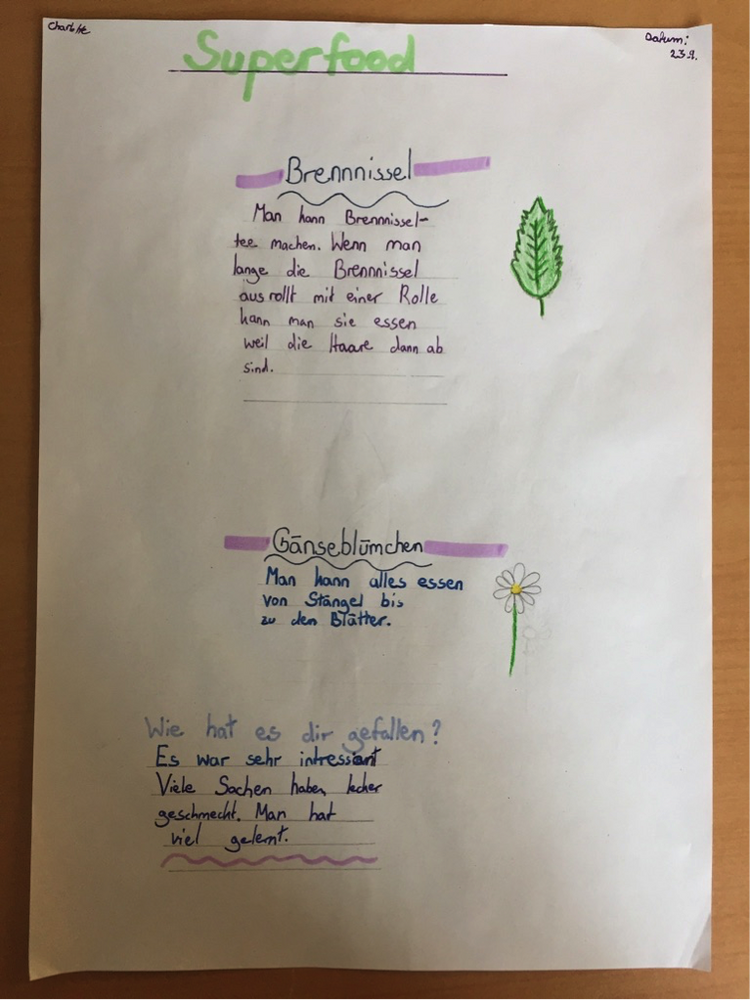 Charlotte
Datum:
23.9.
Superfood
Brennnissel
Man kann Brennnissel-
tee machen. Wenn man
lange die Brennnissel
ausrollt mit einer Rolle
kann man sie essen
weil die Haare dann ab
sind.
Gänseblümchen
Man kann alles essen
von Stängel bis
zu den Blätter.
Wie hat es dir gefallen?
Es war sehr intressant
Viele Sachen haben lecker
geschmeckt. Man hat
viel gelernt.